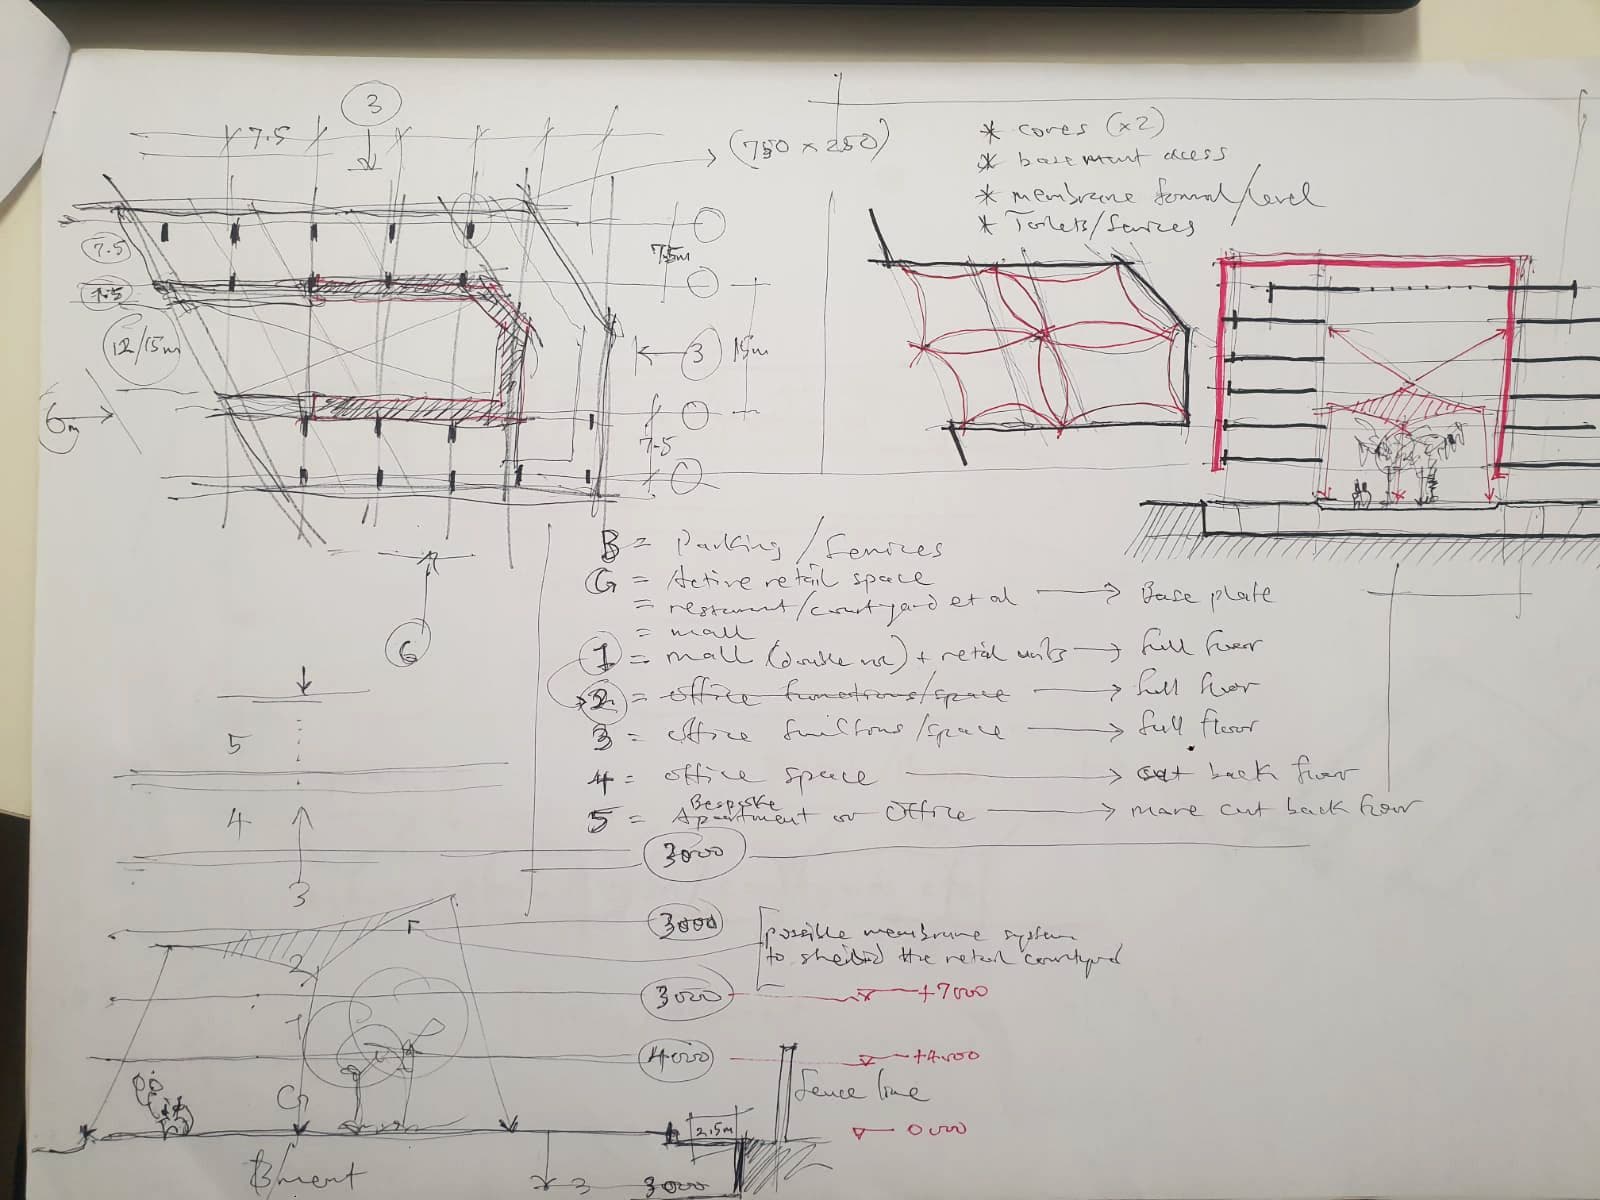 3
7.5
(750 x 250)
* cores (x2)
* basement access
* membrane formal/level
* Toilets/Services
7.5
7.5
12/15m
6m
7.5m
3
15m
7.5
6
B = Parking/Services
G = Active retail space
= restaurant/courtyard et al → Base plate
= mall
1 = mall (double vol) + retail units → full floor
2 = office functions/space → full floor
3 = office functions/space → full floor
4 = office space → cut back floor
5 = Bespoke Apartment or Office → more cut back floor
5
4
3
3000
3000
possible membrane system
to sheild the retail courtyard
2
3000 +7000
1
4000 +4000
fence line
G
2.5m
0000
B/ment
3
3000